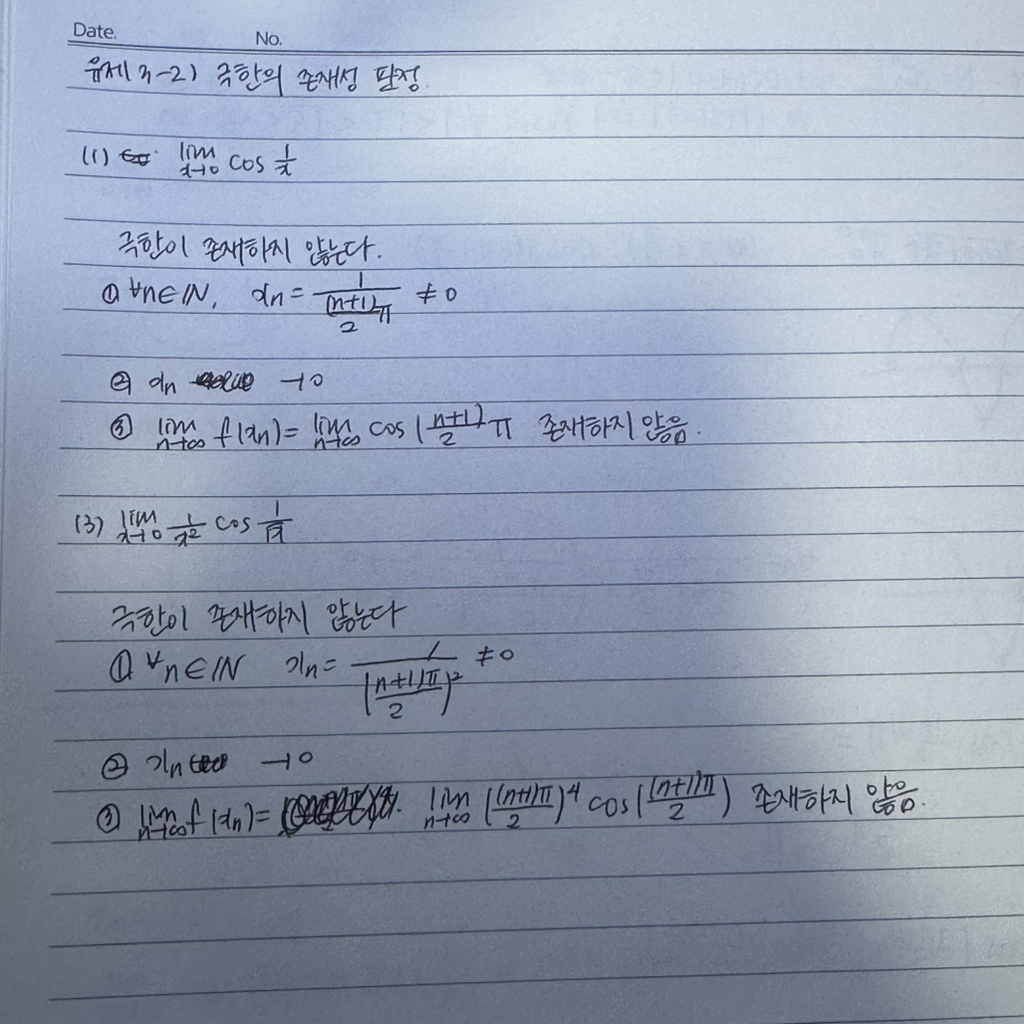 Date. No.
유제 3-2) 극한의 존재성 판정.
(1) lim x→0 cos 1/x
극한이 존재하지 않는다.
① ∀n∈ℕ, xn = 1/((n+1)/2 π) ≠ 0
② xn → 0
③ lim n→∞ f(xn) = lim n→∞ cos (n+1)/2 π 존재하지 않음.
(3) lim x→0 1/x² cos 1/√x
극한이 존재하지 않는다
① ∀n∈ℕ xn = 1/((n+1)π/2)² ≠ 0
② xn → 0
③ lim n→∞ f(xn) = lim n→∞ ((n+1)π/2)⁴ cos((n+1)π/2) 존재하지 않음.